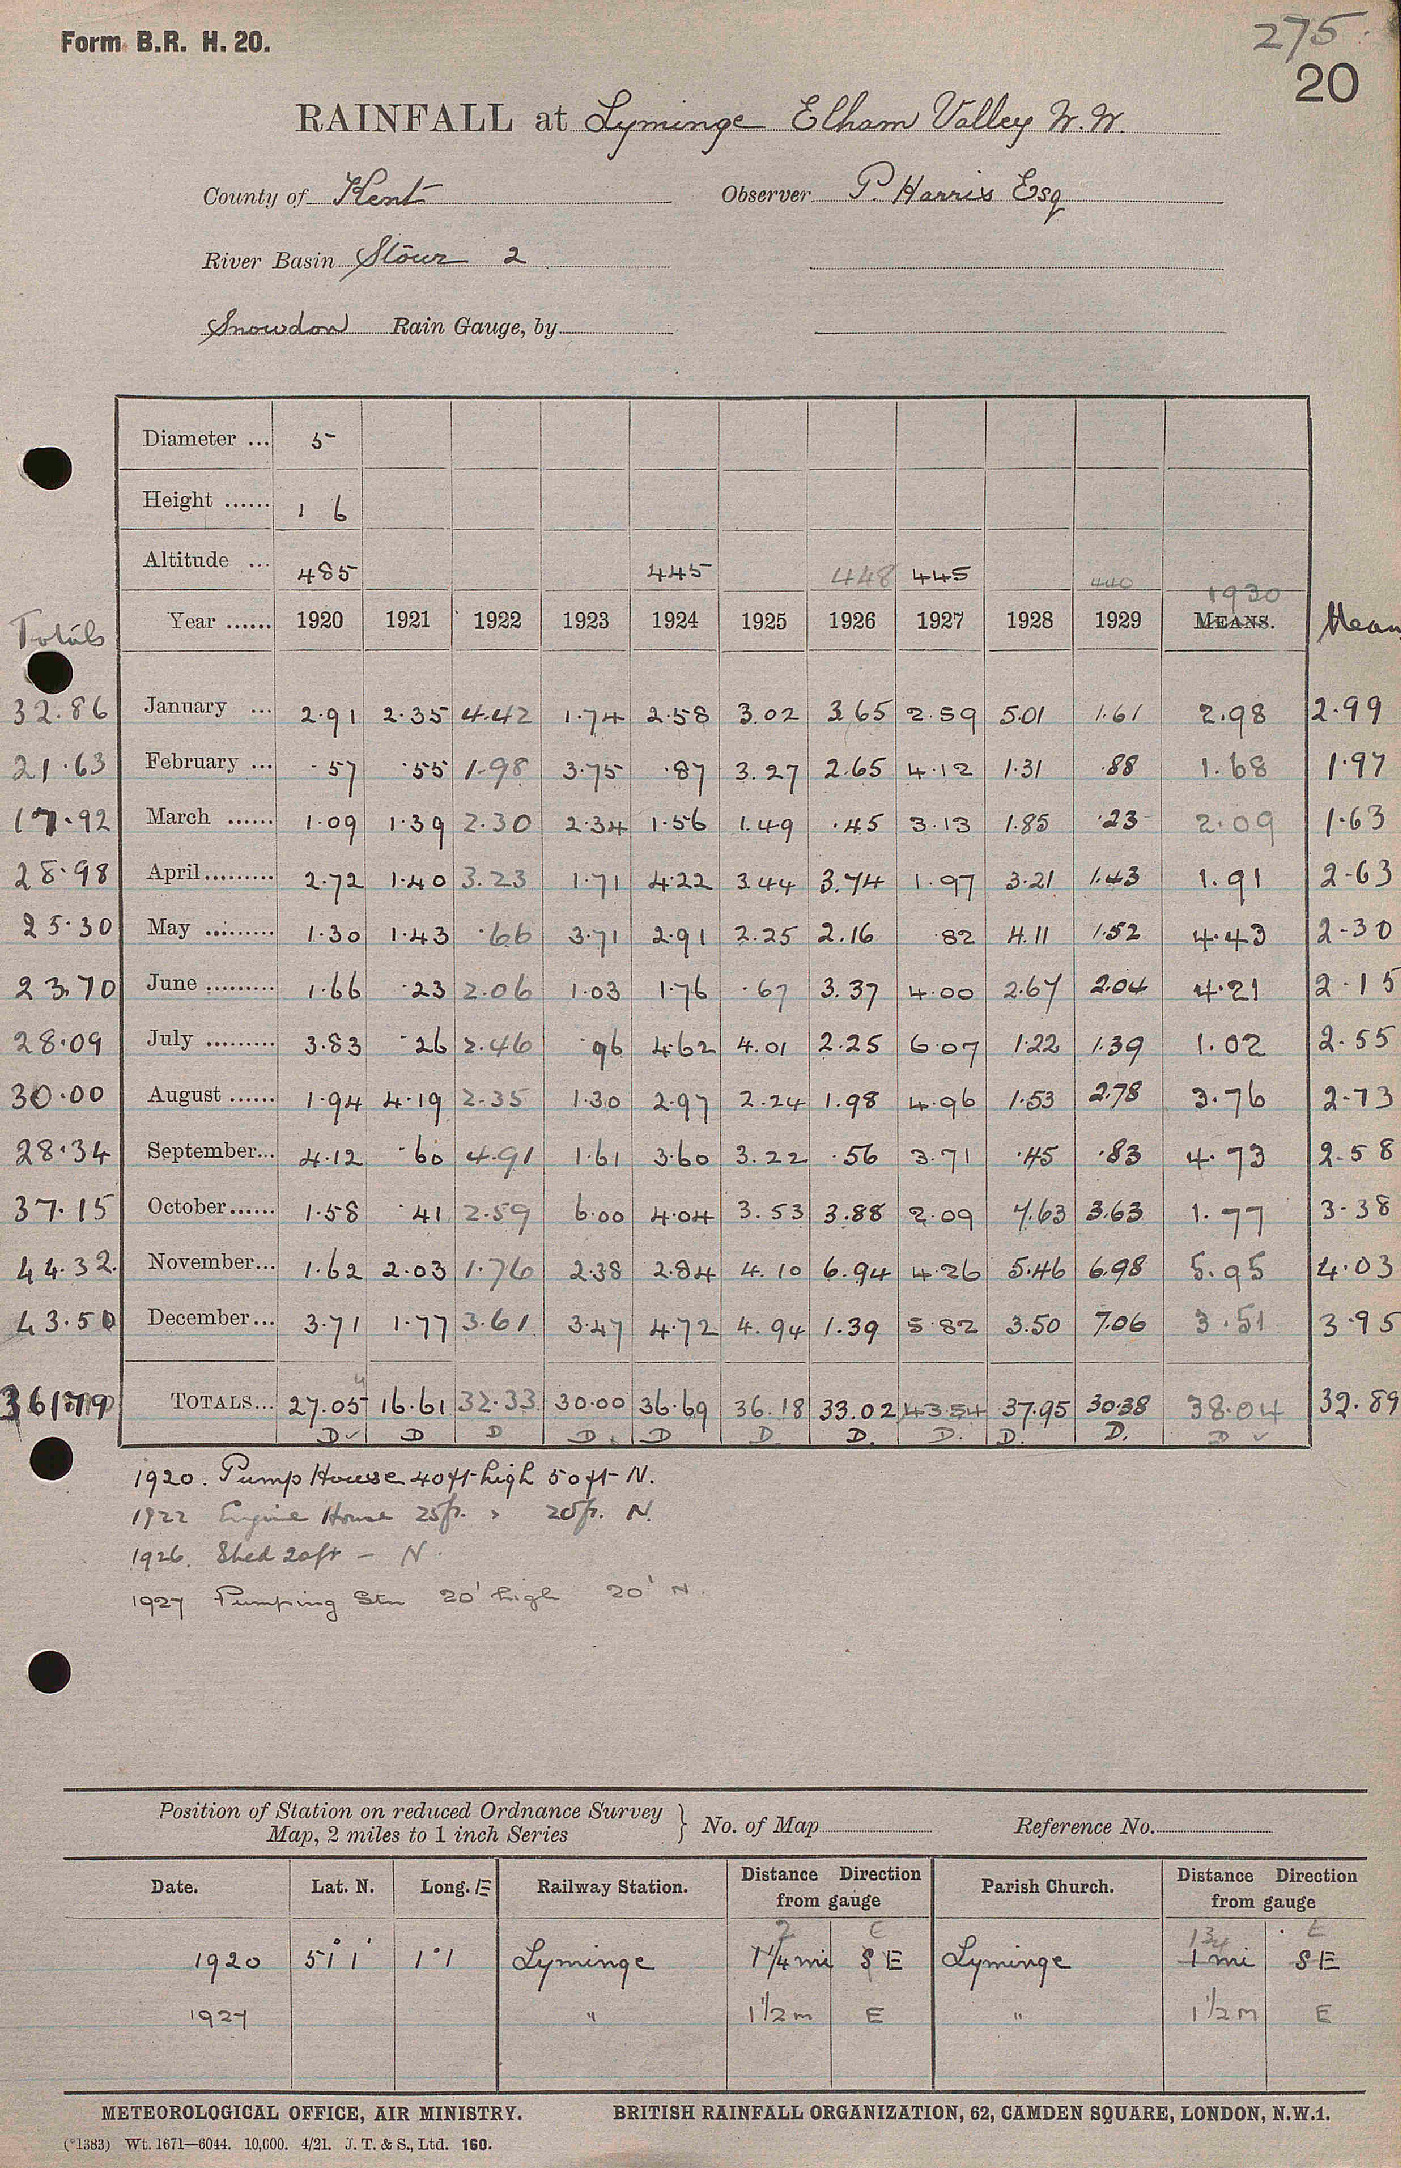 Form B.R. H. 20.
275
20
RAINFALL at Lyminge Elham Valley W.W.
County of Kent Observer P. Harris Esq
River Basin Stour 2
Snowdon Rain Gauge, by
Diameter ... 5
Height ...... 1 6
Altitude ... 485 445 448 445 440
Totals Year ...... 1920 1921 1922 1923 1924 1925 1926 1927 1928 1929 1930 MEANS. Mean
32.86 January ... 2.91 2.35 4.42 1.74 2.58 3.02 3.65 2.59 5.01 1.61 2.98 2.99
21.63 February ... .57 .55 1.98 3.75 .87 3.27 2.65 4.12 1.31 .88 1.68 1.97
17.92 March ...... 1.09 1.39 2.30 2.34 1.56 1.49 .45 3.13 1.85 .23 2.09 1.63
28.98 April ......... 2.72 1.40 3.23 1.71 4.22 3.44 3.74 1.97 3.21 1.43 1.91 2.63
25.30 May ......... 1.30 1.43 .66 3.71 2.91 2.25 2.16 .82 4.11 1.52 4.43 2.30
23.70 June ......... 1.66 .23 2.06 1.03 1.76 .67 3.37 4.00 2.67 2.04 4.21 2.15
28.09 July ......... 3.83 .26 2.46 .96 4.62 4.01 2.25 6.07 1.22 1.39 1.02 2.55
30.00 August ...... 1.94 4.19 2.35 1.30 2.97 2.24 1.98 4.96 1.53 2.78 3.76 2.73
28.34 September... 4.12 .60 4.91 1.61 3.60 3.22 .56 3.71 .45 .83 4.73 2.58
37.15 October ...... 1.58 .41 2.59 6.00 4.04 3.53 3.88 2.09 7.63 3.63 1.77 3.38
44.32 November... 1.62 2.03 1.76 2.38 2.84 4.10 6.94 4.26 5.46 6.98 5.95 4.03
43.50 December... 3.71 1.77 3.61 3.47 4.72 4.94 1.39 5.82 3.50 7.06 3.51 3.95
361.79 TOTALS... 27.05 16.61 32.33 30.00 36.69 36.18 33.02 43.54 37.95 30.38 38.04 32.89
D D D D. D D. D. D. D. D. D
1920. Pump House 40ft high 50ft N.
1922 Engine House 25ft. " 20ft. N.
1926. Shed 20ft - N.
1927 Pumping Stn 20' high 20' N.
Position of Station on reduced Ordnance Survey Map, 2 miles to 1 inch Series } No. of Map Reference No.
Date. Lat. N. Long. E Railway Station. Distance Direction from gauge Parish Church. Distance Direction from gauge
2 E 1 3/4 E
1920 51° 1' 1° 1 Lyminge 1 1/4 mi S E Lyminge 1 mi S E
1927 " 1 1/2 m E " 1 1/2 m E
METEOROLOGICAL OFFICE, AIR MINISTRY. BRITISH RAINFALL ORGANIZATION, 62, CAMDEN SQUARE, LONDON, N.W.1.
(*1383) Wt. 1671—6044. 10,000. 4/21. J. T. & S., Ltd. 160.